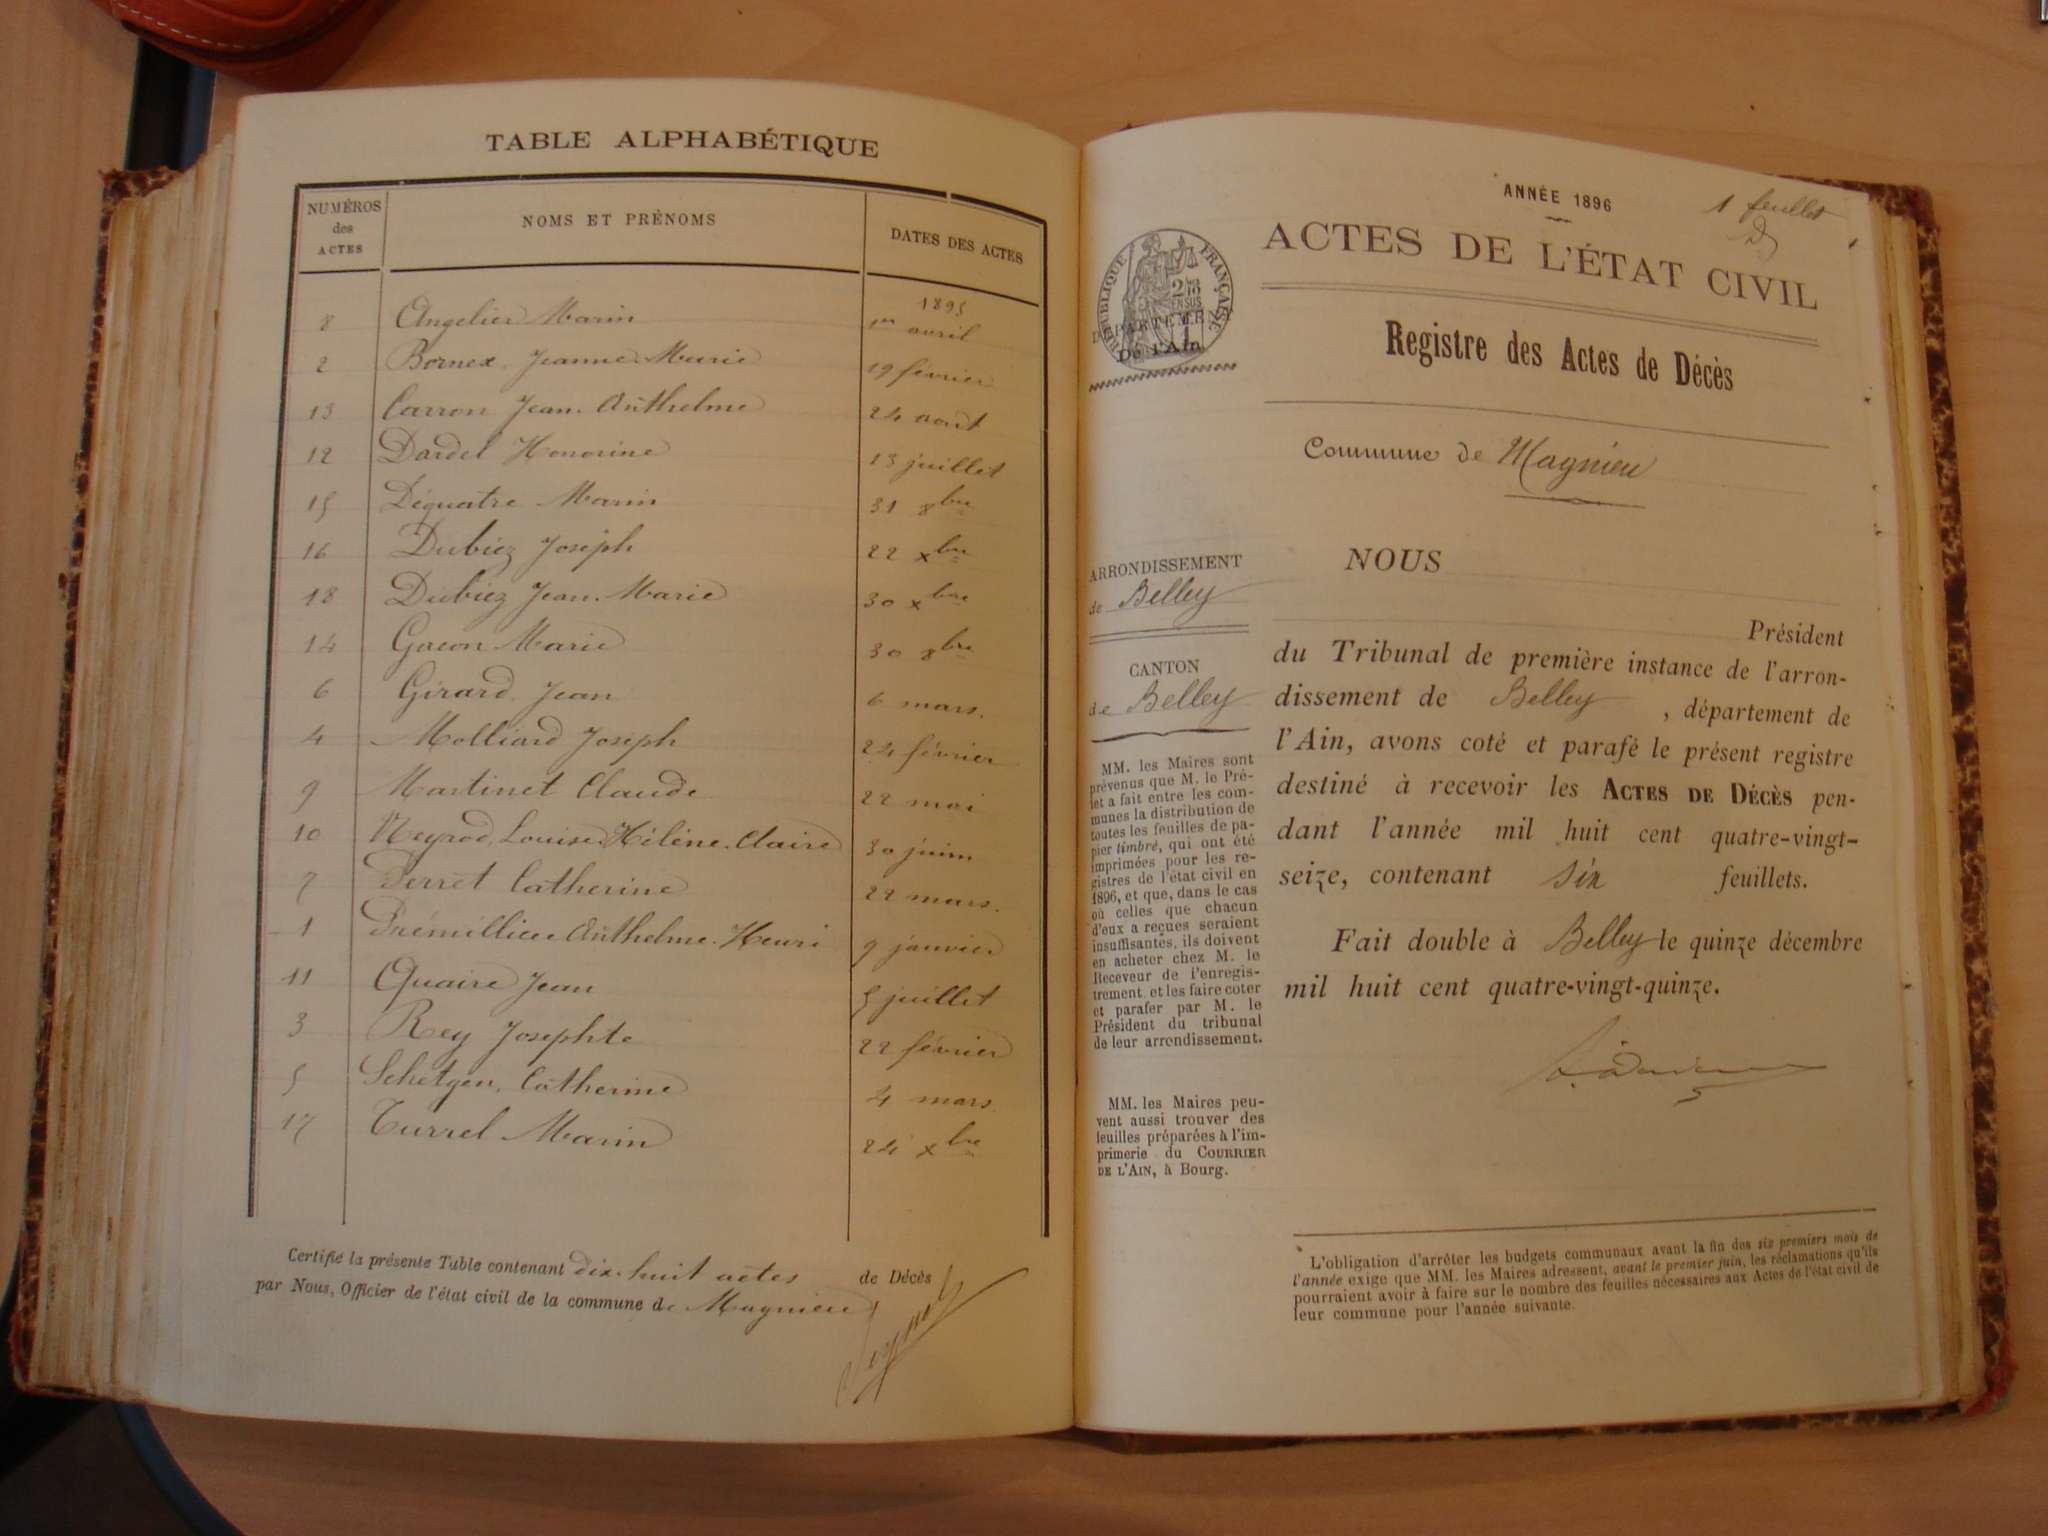 TABLE ALPHABÉTIQUE
NUMÉROS des ACTES
NOMS ET PRÉNOMS
DATES DES ACTES
1895
8 Angelier Marin 1er avril
2 Bornex Jeanne Marie 19 février
13 Carron Jean Anthelme 24 août
12 Dardel Honorine 13 juillet
15 Déquatre Marin 31 8bre
16 Dubiez Joseph 22 xbre
18 Dubiez Jean Marie 30 xbre
14 Gacon Marie 30 8bre
6 Girard Jean 6 mars.
4 Molliard Joseph 24 février
9 Martinet Claude 22 mai
10 Neyrod Louise Hélène Claire 30 juin
7 Perret Catherine 22 mars.
1 Prémillieu Anthelme Henri 9 janvier
11 Quaire Jean 5 juillet
3 Rey Josephte 22 février
5 Schetgen Catherine 4 mars
17 Turrel Marin 24 xbre
Certifié la présente Table contenant dix-huit actes de Décès
par Nous, Officier de l'état civil de la commune de Magnieu
ANNÉE 1896
1 feuillet
ACTES DE L'ÉTAT CIVIL
RÉPUBLIQUE FRANÇAISE
DÉPARTEMENT
De l'Ain
Registre des Actes de Décès
Commune de Magnieu
ARRONDISSEMENT
de Belley
CANTON
de Belley
MM. les Maires sont
prévenus que M. le Pré-
fet a fait entre les com-
munes la distribution de
toutes les feuilles de pa-
pier timbré, qui ont été
imprimées pour les re-
gistres de l'état civil en
1896, et que, dans le cas
où celles que chacun
d'eux a reçues seraient
insuffisantes, ils doivent
en acheter chez M. le
Receveur de l'enregis-
trement et les faire coter
et parafer par M. le
Président du tribunal
de leur arrondissement.
MM. les Maires peu-
vent aussi trouver des
feuilles préparées à l'im-
primerie du COURRIER
DE L'AIN, à Bourg.
NOUS
Président
du Tribunal de première instance de l'arron-
dissement de Belley, département de
l'Ain, avons coté et parafé le présent registre
destiné à recevoir les ACTES DE DÉCÈS pen-
dant l'année mil huit cent quatre-vingt-
seize, contenant six feuillets.
Fait double à Belley le quinze décembre
mil huit cent quatre-vingt-quinze.
L'obligation d'arrêter les budgets communaux avant la fin des six premiers mois de
l'année exige que MM. les Maires adressent, avant le premier juin, les réclamations qu'ils
pourraient avoir à faire sur le nombre des feuilles nécessaires aux Actes de l'état civil de
leur commune pour l'année suivante.